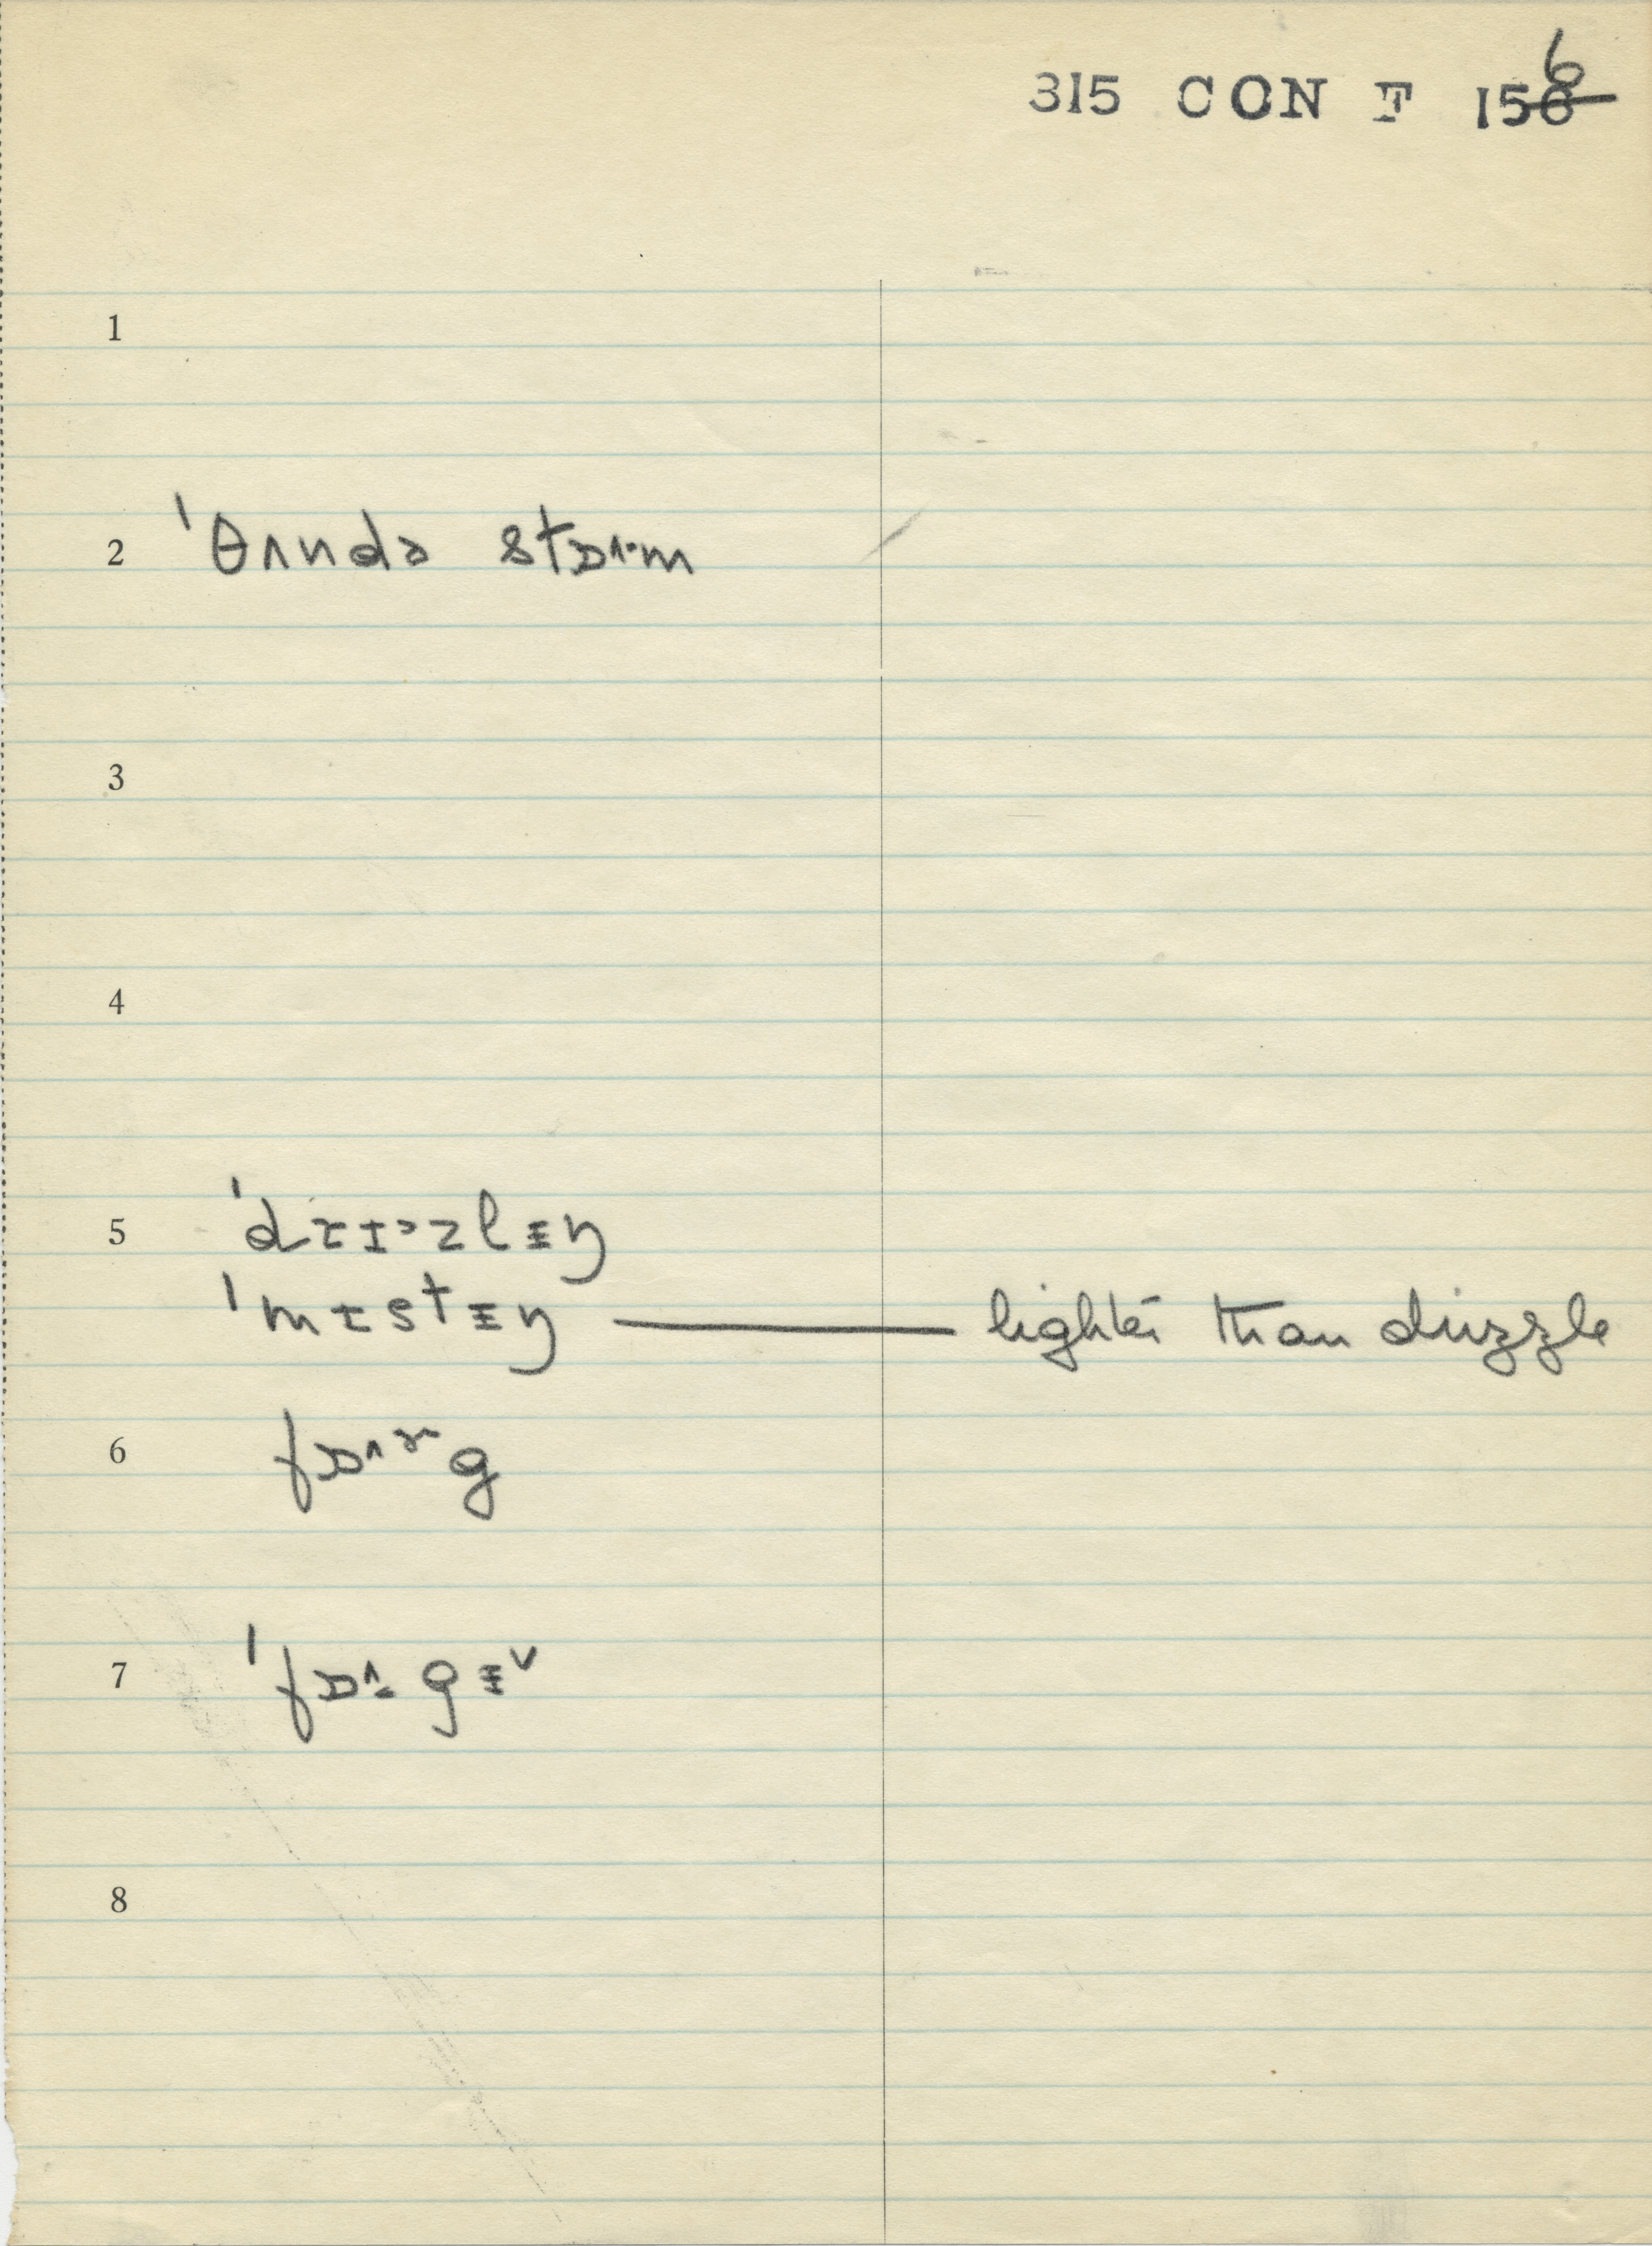 6
315 CON F 156
1
2 ˈθʌndə stɒ˄·m
3
4
5 ˈdɹɪ˃zlᵻŋ
ˈmɪstᵻŋ — lighter than drizzle
6 fɒ˄·g
7 ˈfɒ˄·gᵻ˅
8